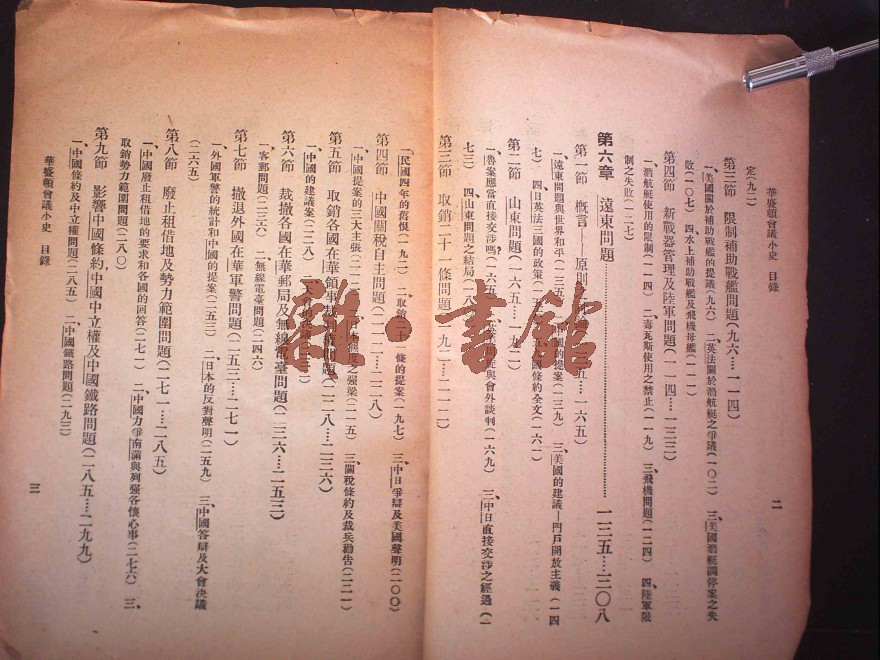 華盛頓會議小史 目錄
二
定(九二)
第三節 限制補助戰艦問題(九六…一一四)
一、美國關於補助戰艦的提議(九六) 二、英法關於潛航艇之爭議(一〇二) 三、美國潛艇調停案之失
敗(一〇七) 四、水上補助戰艦及飛機母艦(一一一)
第四節 新戰器管理及陸軍問題(一一四…一三三)
一、潛航艇使用的限制(一一四) 二、毒瓦斯使用之禁止(一一九) 三、飛機問題(一二四) 四、陸軍限
制之失敗(一二七)
第六章 遠東問題………一三五…三〇八
第一節 概言——原則問題 一六五)
一、遠東問題與世界和平(一三五) 中國的提案(一三九) 三、美國的建議—門戶開放主義(一四
七) 四、日英法三國的政策(一五 國條約全文(一六一)
第二節 山東問題(一六五…一九二)
一、魯案應當直接交涉嗎?(一六五) 與會外談判(一六九) 三、中日直接交涉之經過(一
七三) 四、山東問題之結局(一八
第三節 取銷二十一條問題 一九二…二一二)
一、民國四年的舊恨(一九二) 二、取銷二十一條的提案(一九七) 三、中日爭辯及美國聲明(二〇〇)
第四節 中國關稅自主問題(二一二…二二八)
一、中國提案的三大主張(二一二) 之强梁(二一五) 三、關稅條約及裁兵勸告(二二一)
第五節 取銷各國在華領事裁判權問題(二二八…二三六)
一、中國的建議案(二二八)
第六節 裁撤各國在華郵局及無線電臺問題(二三六…二五三)
一、客郵問題(二三六) 二、無線電臺問題(二四六)
第七節 撤退外國在華軍警問題(二五三…二七一)
一、外國軍警的統計和中國的提案(二五三) 二、日本的反對聲明(二五九) 三、中國答辯及大會決議
(二六五)
第八節 廢止租借地及勢力範圍問題(二七一…二八五)
一、中國廢止租借地的要求和各國的回答(二七一) 二、中國力爭南滿與列强各懷心事(二七六) 三、
取銷勢力範圍問題(二八〇)
第九節 影響中國條約,中國中立權及中國鐵路問題(二八五…二九九)
一、中國條約及中立權問題(二八五) 二、中國鐵路問題(二九三)
華盛頓會議小史 目錄
三
雅·書館